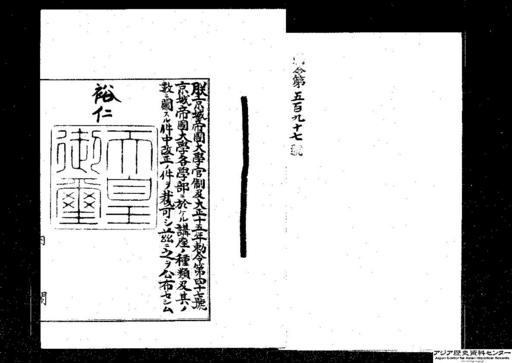 勅令第五百九十七號
朕京城帝國大學官制及大正十五年勅令第四十七號
京城帝國大學各學部ニ於ケル講座ノ種類及其ノ
數ニ關スル件中改正ノ件ヲ裁可シ茲ニ之ヲ公布セシム
裕仁
天皇
御璽
内閣
アジア歴史資料センター
Japan Center for Asian Historical Records